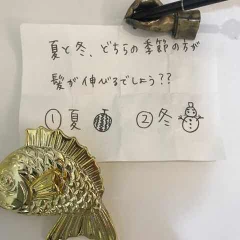 夏と冬、どちらの季節の方が
髪が伸びるでしょう??
①夏 ②冬